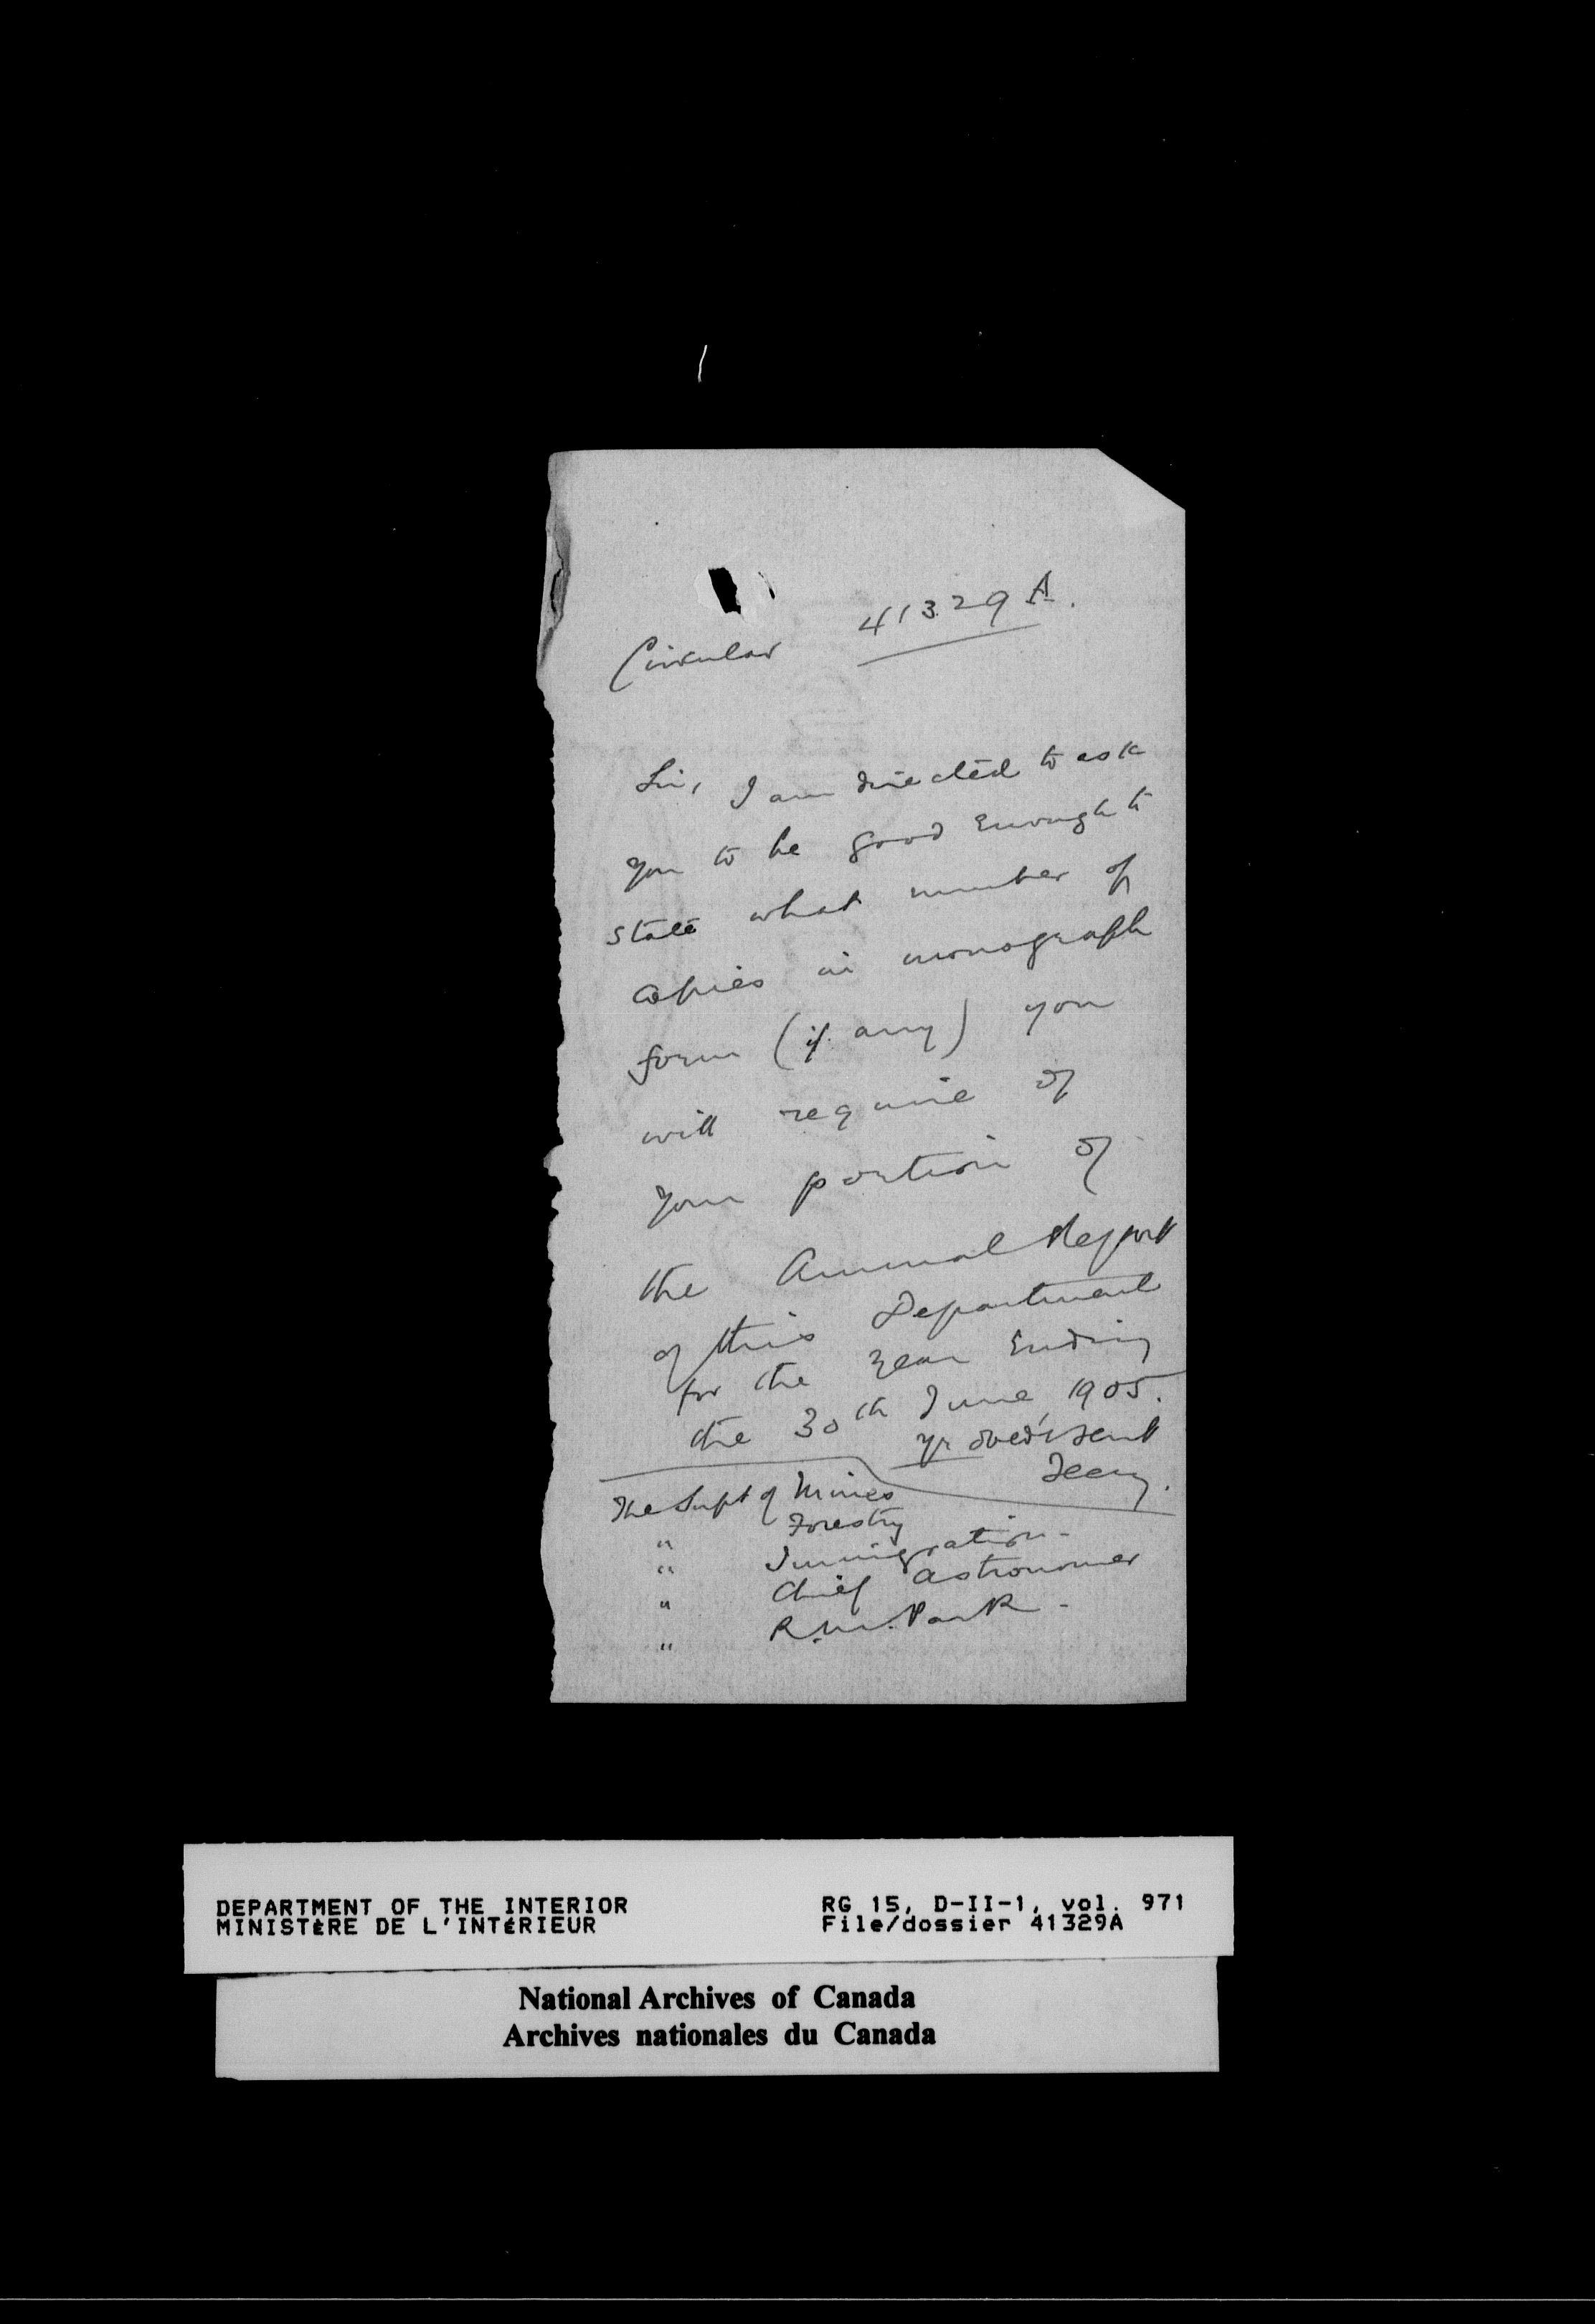 Circular 41329 A.
Sir, I am directed to ask
you to be good enough to
state what number of
copies in monograph
form (if any) you
will require of
your portion of
the Annual Report
of this Department
for the year ending
the 30th June, 1905.
yr obed't servt
Secy.
The Supt of Mines
" Forestry
" Immigration -
" Chief Astronomer
" R. M. Park -
DEPARTMENT OF THE INTERIOR RG 15, D-II-1, vol. 971
MINISTÈRE DE L'INTÉRIEUR File/dossier 41329A
National Archives of Canada
Archives nationales du Canada